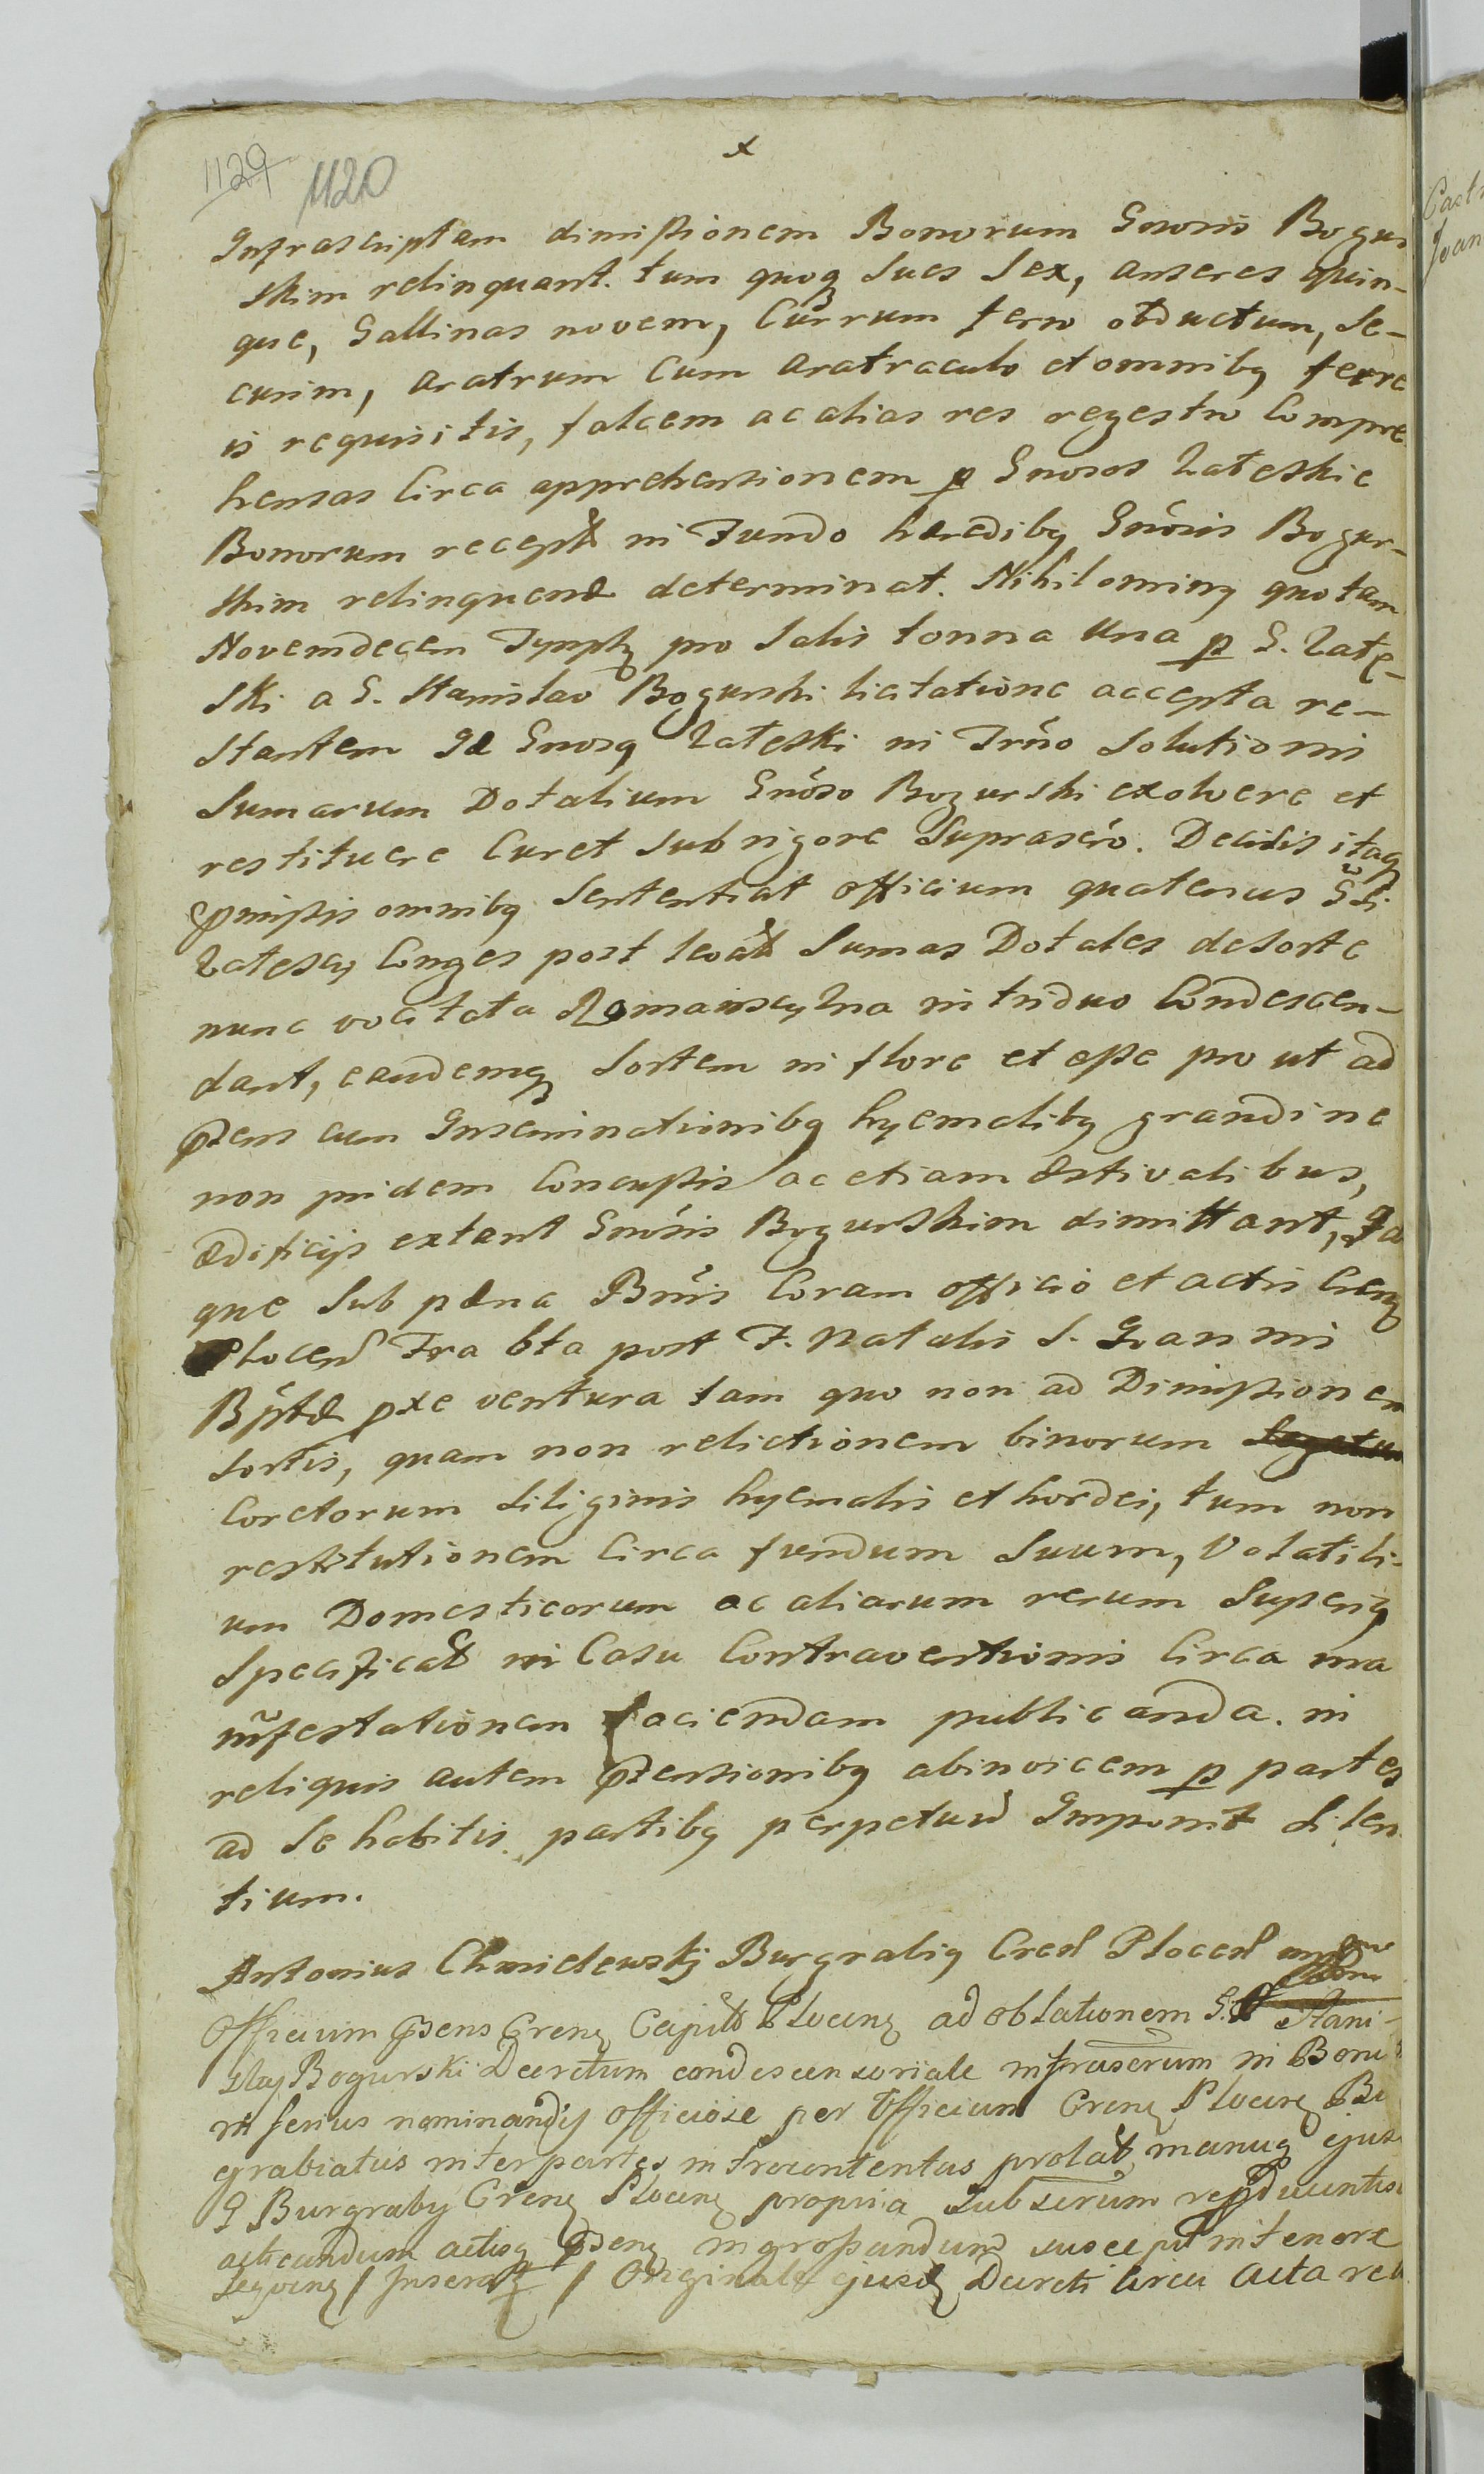 x
1129 1120
Infrascriptam dimissionem Bonorum Gnoris Bogur
skim relinquant. tum quoq Sues Sex, anseres quin-
que, Gallinas novem, Currum ferro obductum, Se-
curim, aratrum Cum aratraculo et omnibq ferre
is requisitis, falcem ac alias res regestro Compre
hensas Circa apprehensionem p Gnosos Zateskie
Bonorum recept in Fundo haeredibq Gnosis Bogur-
skim relinquend determinat. Nihilominq quotam
Novemdecem Tymph pro Salis tonna una p G. Zate-
ski a G. Stanislao Bogurski licitatione accepta re-
stantem Gnosq Zateski in Trno Solutionis
Sumarum Dotalium Gnoso Bogurski exolvere et
restituere Curet Sub rigore Suprascro. Decisis itaq
pmissis omnibq Sententiat officium quatenus
Zatescy Conges post levat Sumas Dotales de Sorte
nunc vocitata Romanscyzna in triduo Condescen-
dant, eandemq Sortem in flore et esse pro ut ad
psens cum Inseminationibq hyemalibq grandine
non pridem Concussis ac etiam aestivalibus,
aedificijs extant Gnosis Bogurskim dimittant,
que Sub paena Bnis Coram officio et actis Crenq
Plocen Fra 6ta post F. Natalis S. Joannis
Bptae pxe ventura tam quo non ad Dimissionem
Sortis, quam non relictionem binorum
Coretorum Siliginis hyemalis et hordei, tum non
restitutionem Circa fundum Suum, Volatili-
um Domesticorum ac aliarum rerum Superiq
Specificat in Casu Contraventionis Circa ma
nifestationem faciendam publicanda. in
reliquis autem ptensionibq abinvicem p partes
ad Se habitis partibq perpetuu Imponit Silen
tium.
Antonius Chmielewskj Burgrabiq Cren Plocen mp
Officium psens Crenq Capit Plocenq ad oblationem G. Stani-
slaj Bogurski Decretum condescensoriale infrascrum in Boni
inferius nominandis officiose per Officium Crenq Plocenq Bu
grabiatus inter partes introcontentas prolat, manuq ejus
G Burgraby Crenq Plocenq propria Subscrum reproducentis
acticandum actisq psenq ingrossandum suscepit in tenore
Sequenq / Inseratq / Originale ejusd Decreti circa acta re